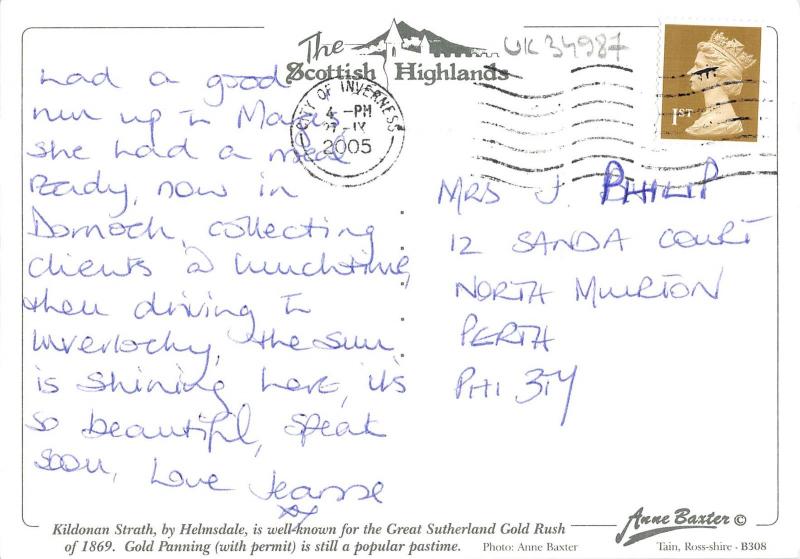 The
Scottish Highlands
UK 34987
1ST
CITY OF INVERNESS
4 -PM
27-IX
2005
had a good
run up to
she had a meal
ready, now in
Dornoch, collecting
clients @ lunchtime,
then driving to
Inverlochy, the sun
is shining here, it's
so beautiful, speak
soon, Love Jeanne
MRS J. PHILIP
12 SANDA COURT
NORTH MUIRTON
PERTH
PH1 3TY
Kildonan Strath, by Helmsdale, is well-known for the Great Sutherland Gold Rush
of 1869. Gold Panning (with permit) is still a popular pastime. Photo: Anne Baxter
Anne Baxter ©
Tain, Ross-shire - B308